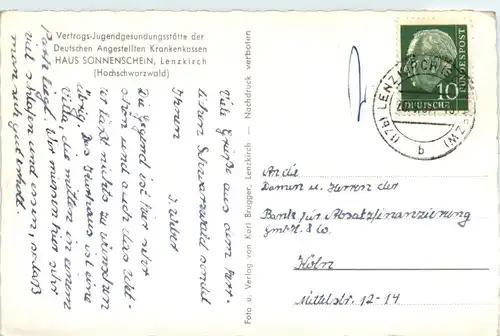 Vertrags-Jugendgesundungsstätte der
Deutschen Angestellten Krankenkassen
HAUS SONNENSCHEIN, Lenzkirch
(Hochschwarzwald)
Viele Grüße aus dem herr-
lichen Schwarzwald sendet
Ihnen
J. Weber
Die Gegend ist hier sehr
schön und auch das Wet-
ter läßt nichts zu wünschen
übrig. Das Kurhaus ist eine
Villa, die mitten in einem
Park liegt. Wir müssen hier sehr
viel schlafen und essen, sodaß
man sich gut erholt.
Foto u. Verlag von Karl Brugger, Lenzkirch — Nachdruck verboten
DEUTSCHE
BUNDESPOST
10
(17b) LENZKIRCH
b
An die
Damen u. Herren der
Bank für Absatzfinanzierung
GmbH. & Co.
Köln
Mittelstr. 12-14